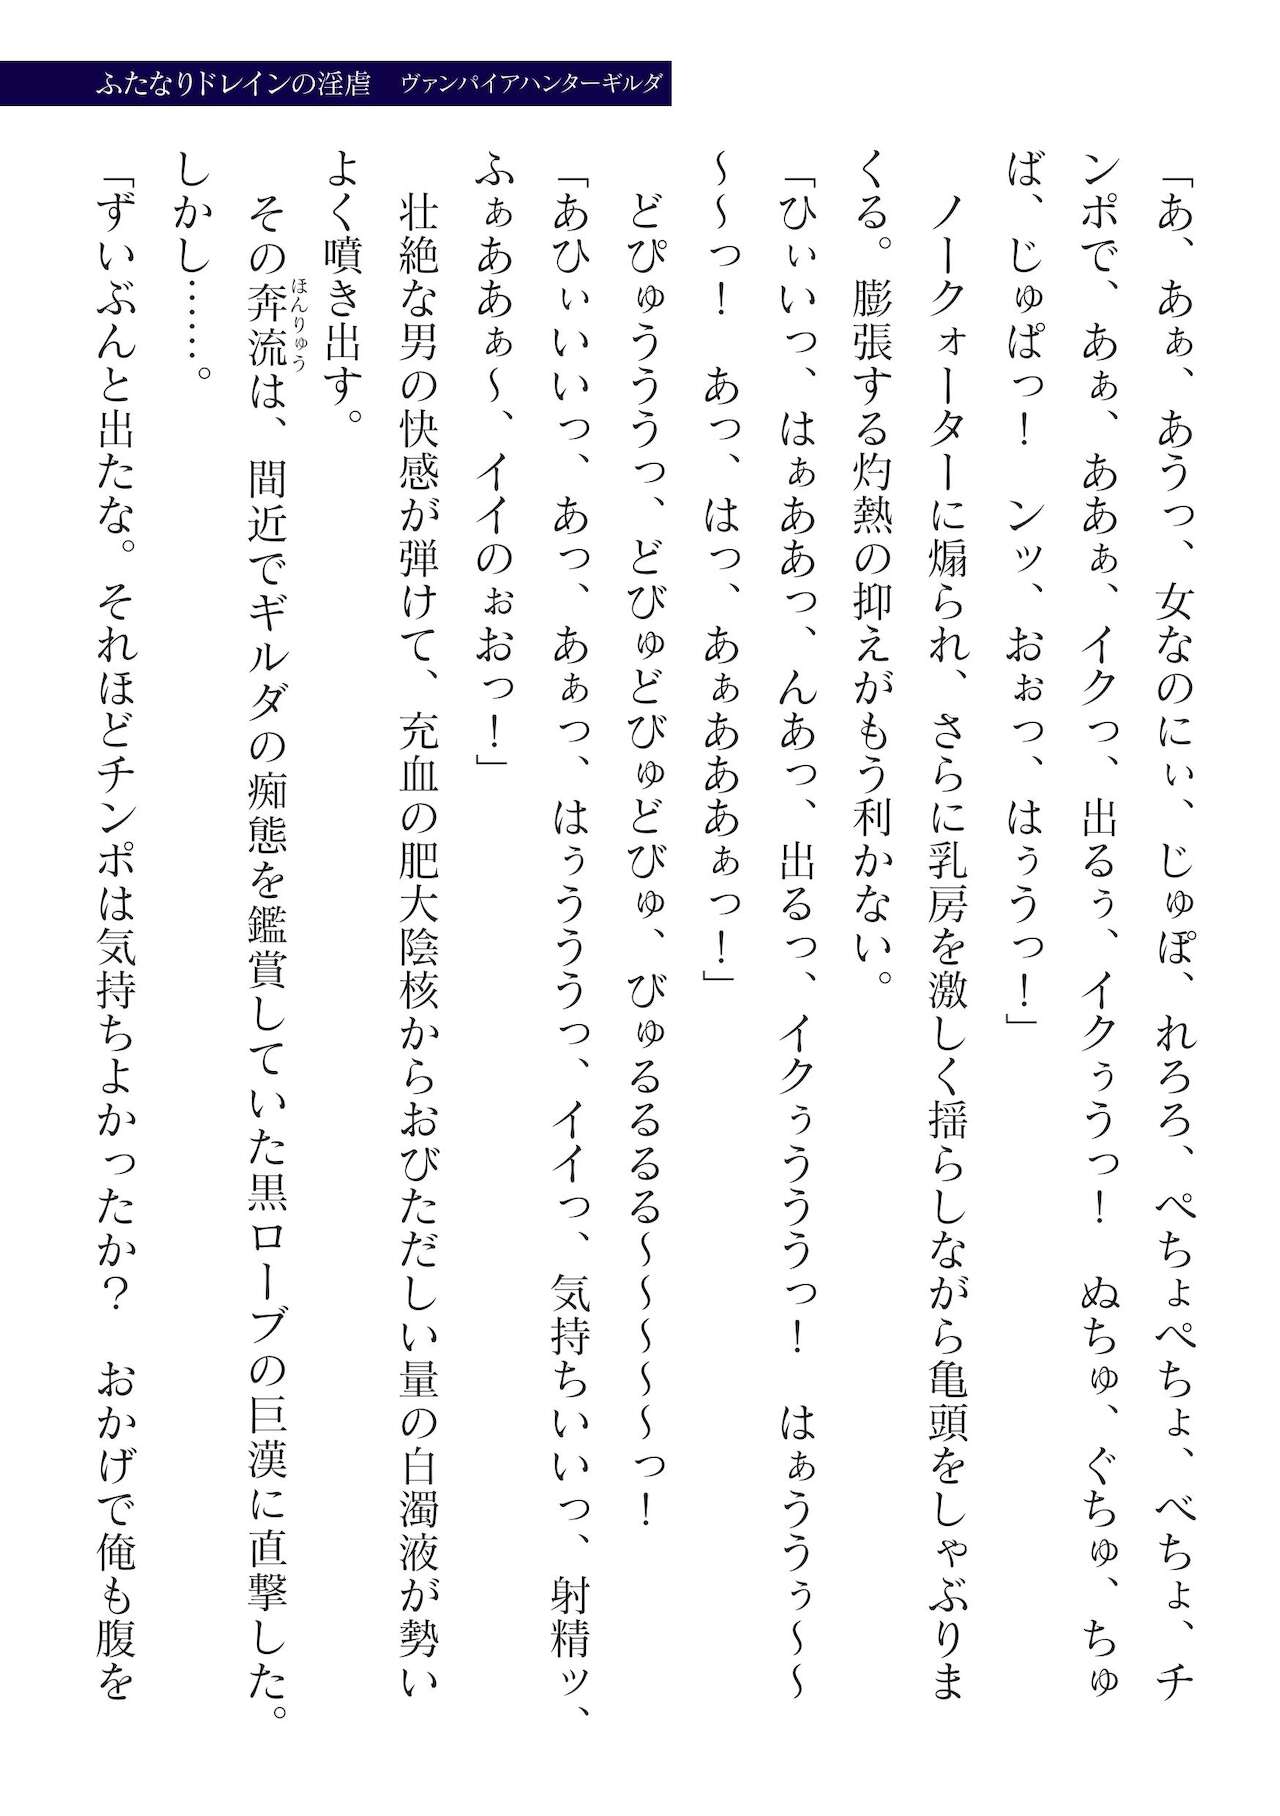 ふたなりドレインの淫虐　ヴァンパイアハンターギルダ
「あ、あぁ、あうっ、女なのにぃ、じゅぽ、れろろ、ぺちょぺちょ、べちょ、チ
ンポで、あぁ、ああぁ、イクっ、出るぅ、イクぅうっ！　ぬちゅ、ぐちゅ、ちゅ
ば、じゅぱっ！　ンッ、おぉっ、はぅうっ！」
　ノークォーターに煽られ、さらに乳房を激しく揺らしながら亀頭をしゃぶりま
くる。膨張する灼熱の抑えがもう利かない。
「ひぃいっ、はぁああっ、んあっ、出るっ、イクぅうううっ！　はぁううぅ～～
～～っ！　あっ、はっ、あぁあああぁっ！」
　どぴゅうううっ、どびゅどびゅどびゅ、びゅるるるる～～～～～っ！
「あひぃいいっ、あっ、あぁっ、はぅうううっ、イイっ、気持ちいいっ、射精ッ、
ふぁああぁ～、イイのぉおっ！」
　壮絶な男の快感が弾けて、充血の肥大陰核からおびただしい量の白濁液が勢い
よく噴き出す。
　その奔流は、間近でギルダの痴態を鑑賞していた黒ローブの巨漢に直撃した。
ほんりゅう
しかし……。
「ずいぶんと出たな。それほどチンポは気持ちよかったか？　おかげで俺も腹を